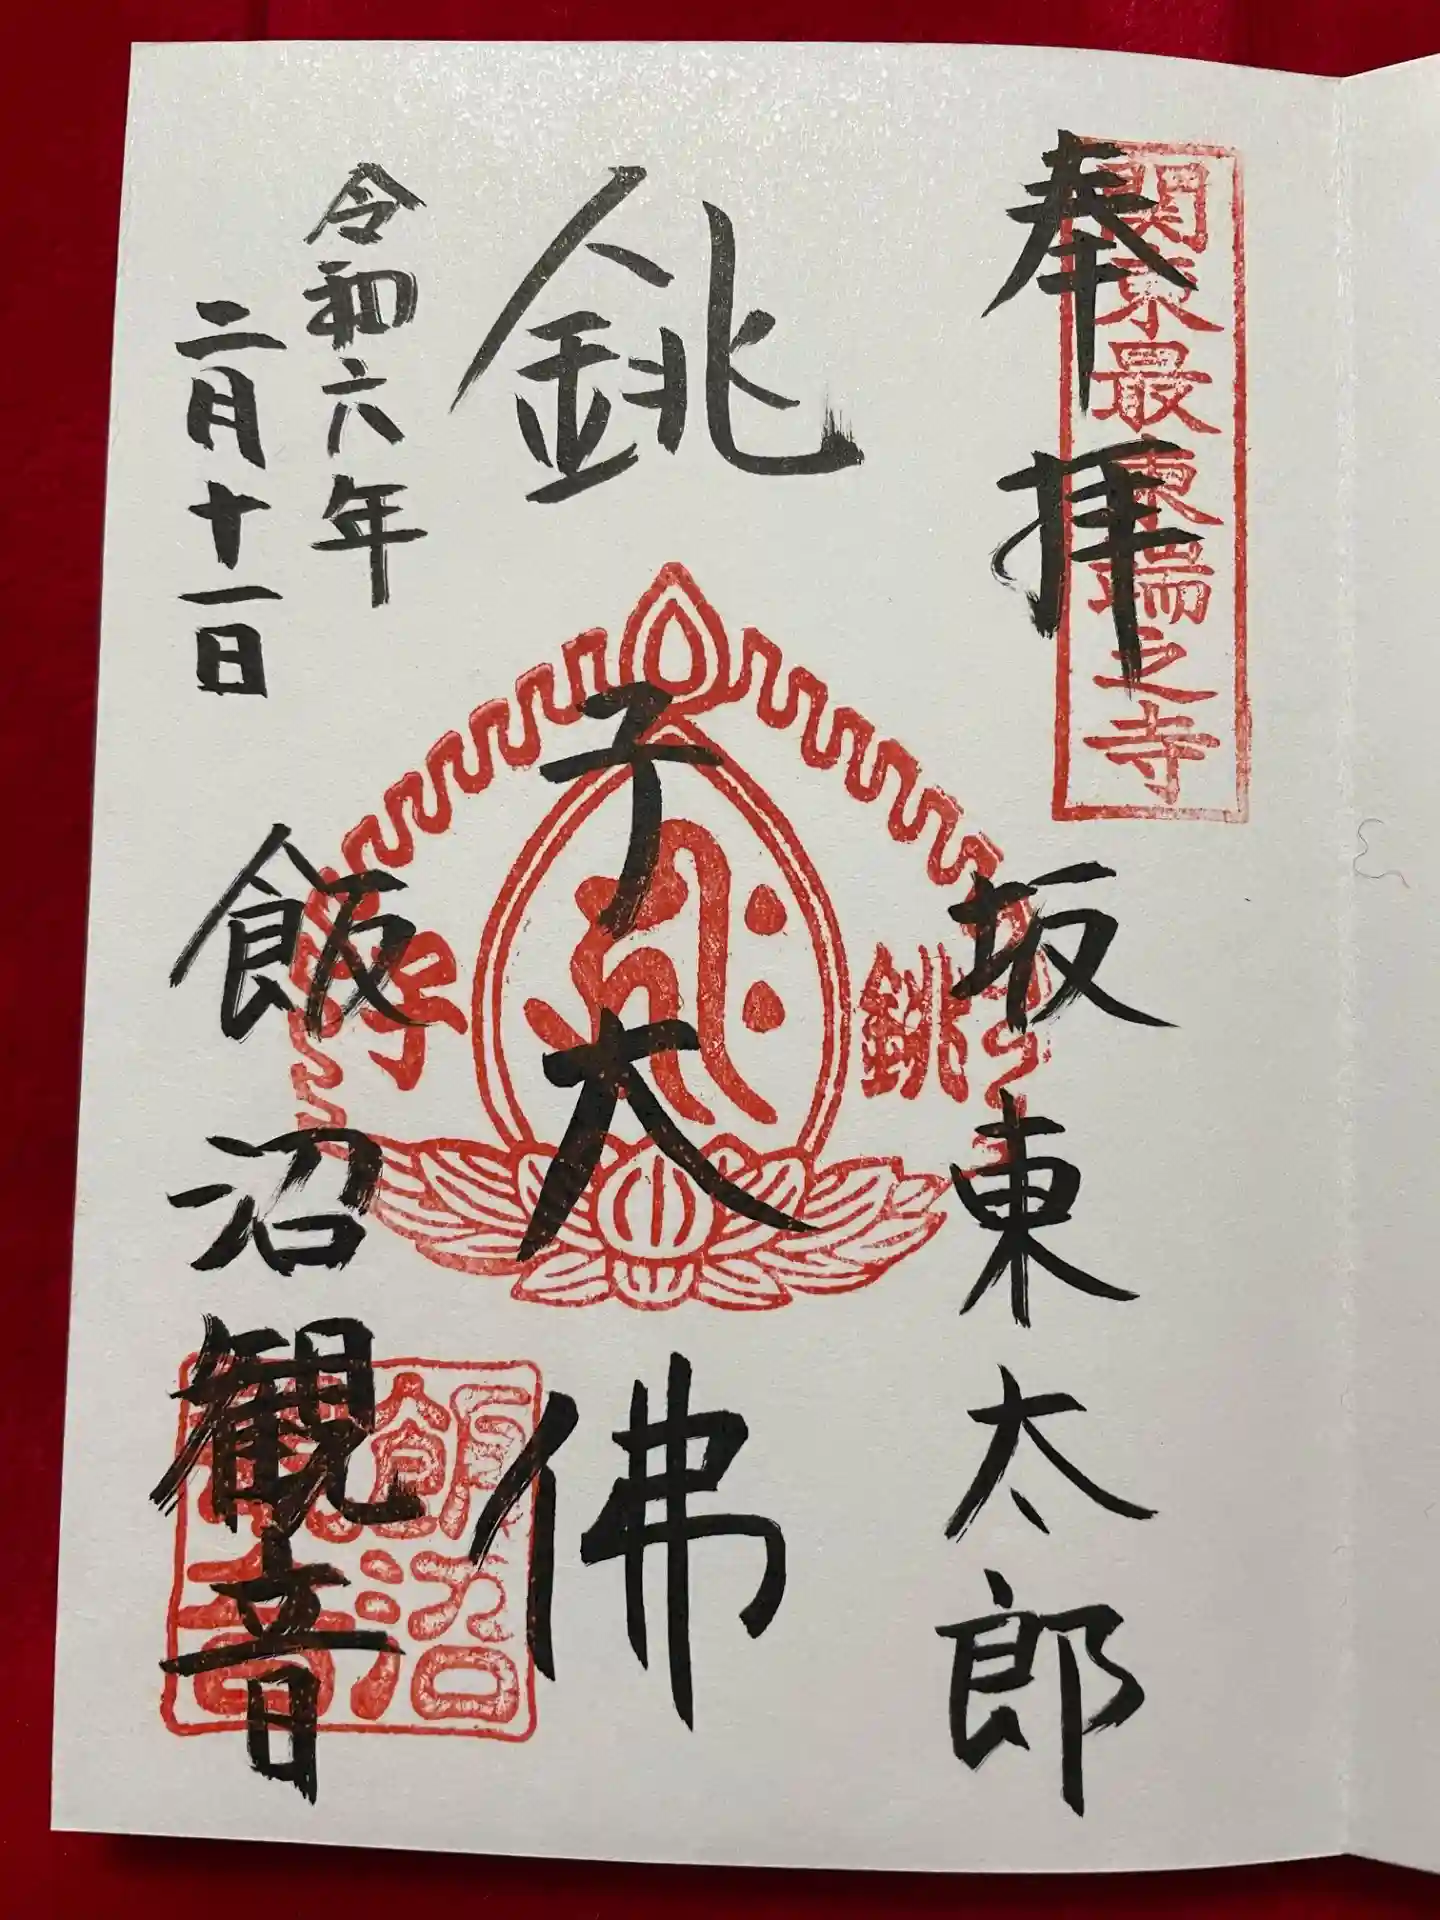 奉拝
関東最東端之寺
坂東太郎
銚子大佛
銚子
令和六年
二月十一日
飯沼観音
飯沼観音